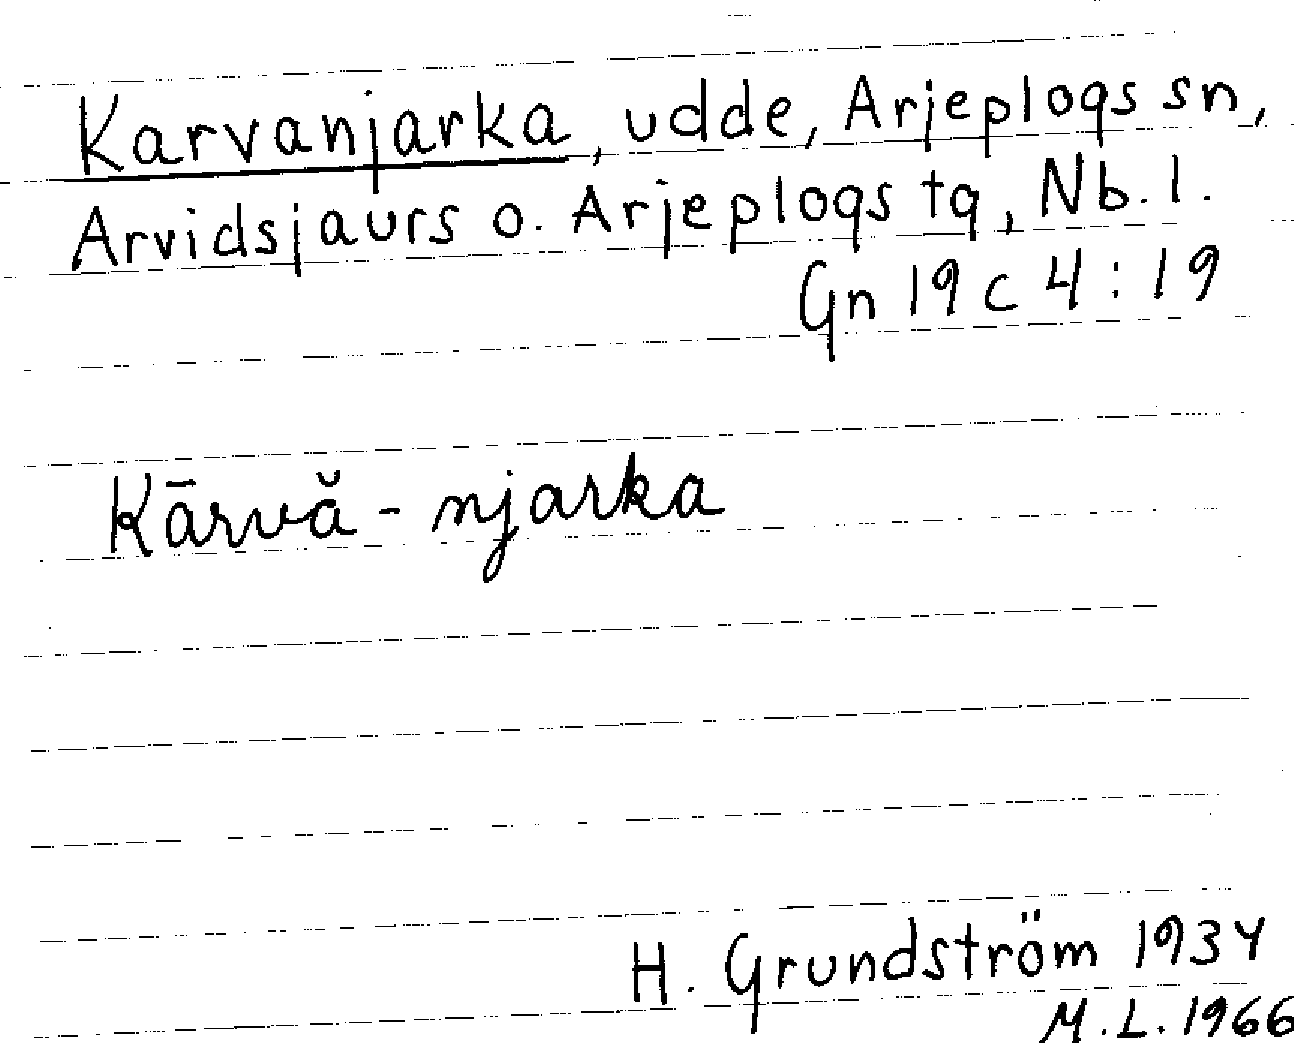 Karvanjarka, udde, Arjeplogs sn,
Arvidsjaurs o. Arjeplogs tg, Nb. l.
Gn 19 c 4:19
Kārvă-njarka
H. Grundström 1934
M.L. 1966